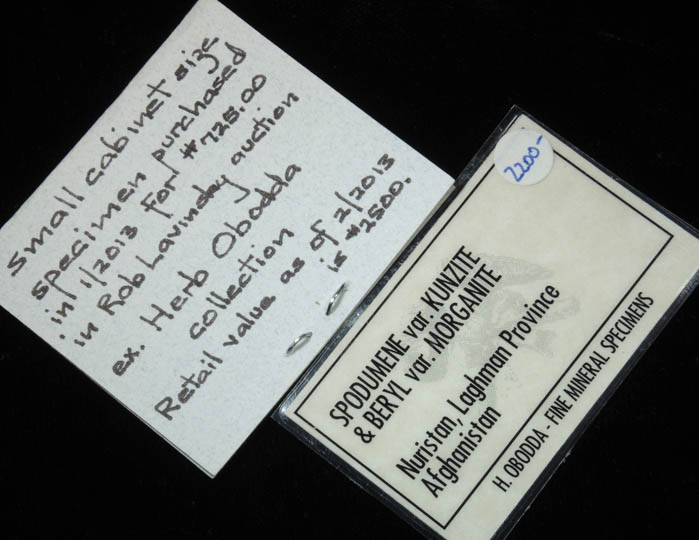 small cabinet size
specimen purchased
in 1/2013 for $725.00
in Rob Lavinsky auction
ex. Herb Obodda
collection
Retail value as of 2/2013
is $2500.
2200-
SPODUMENE var. KUNZITE
& BERYL var. MORGANITE
Nuristan, Laghman Province
Afghanistan
H. OBODDA - FINE MINERAL SPECIMENS